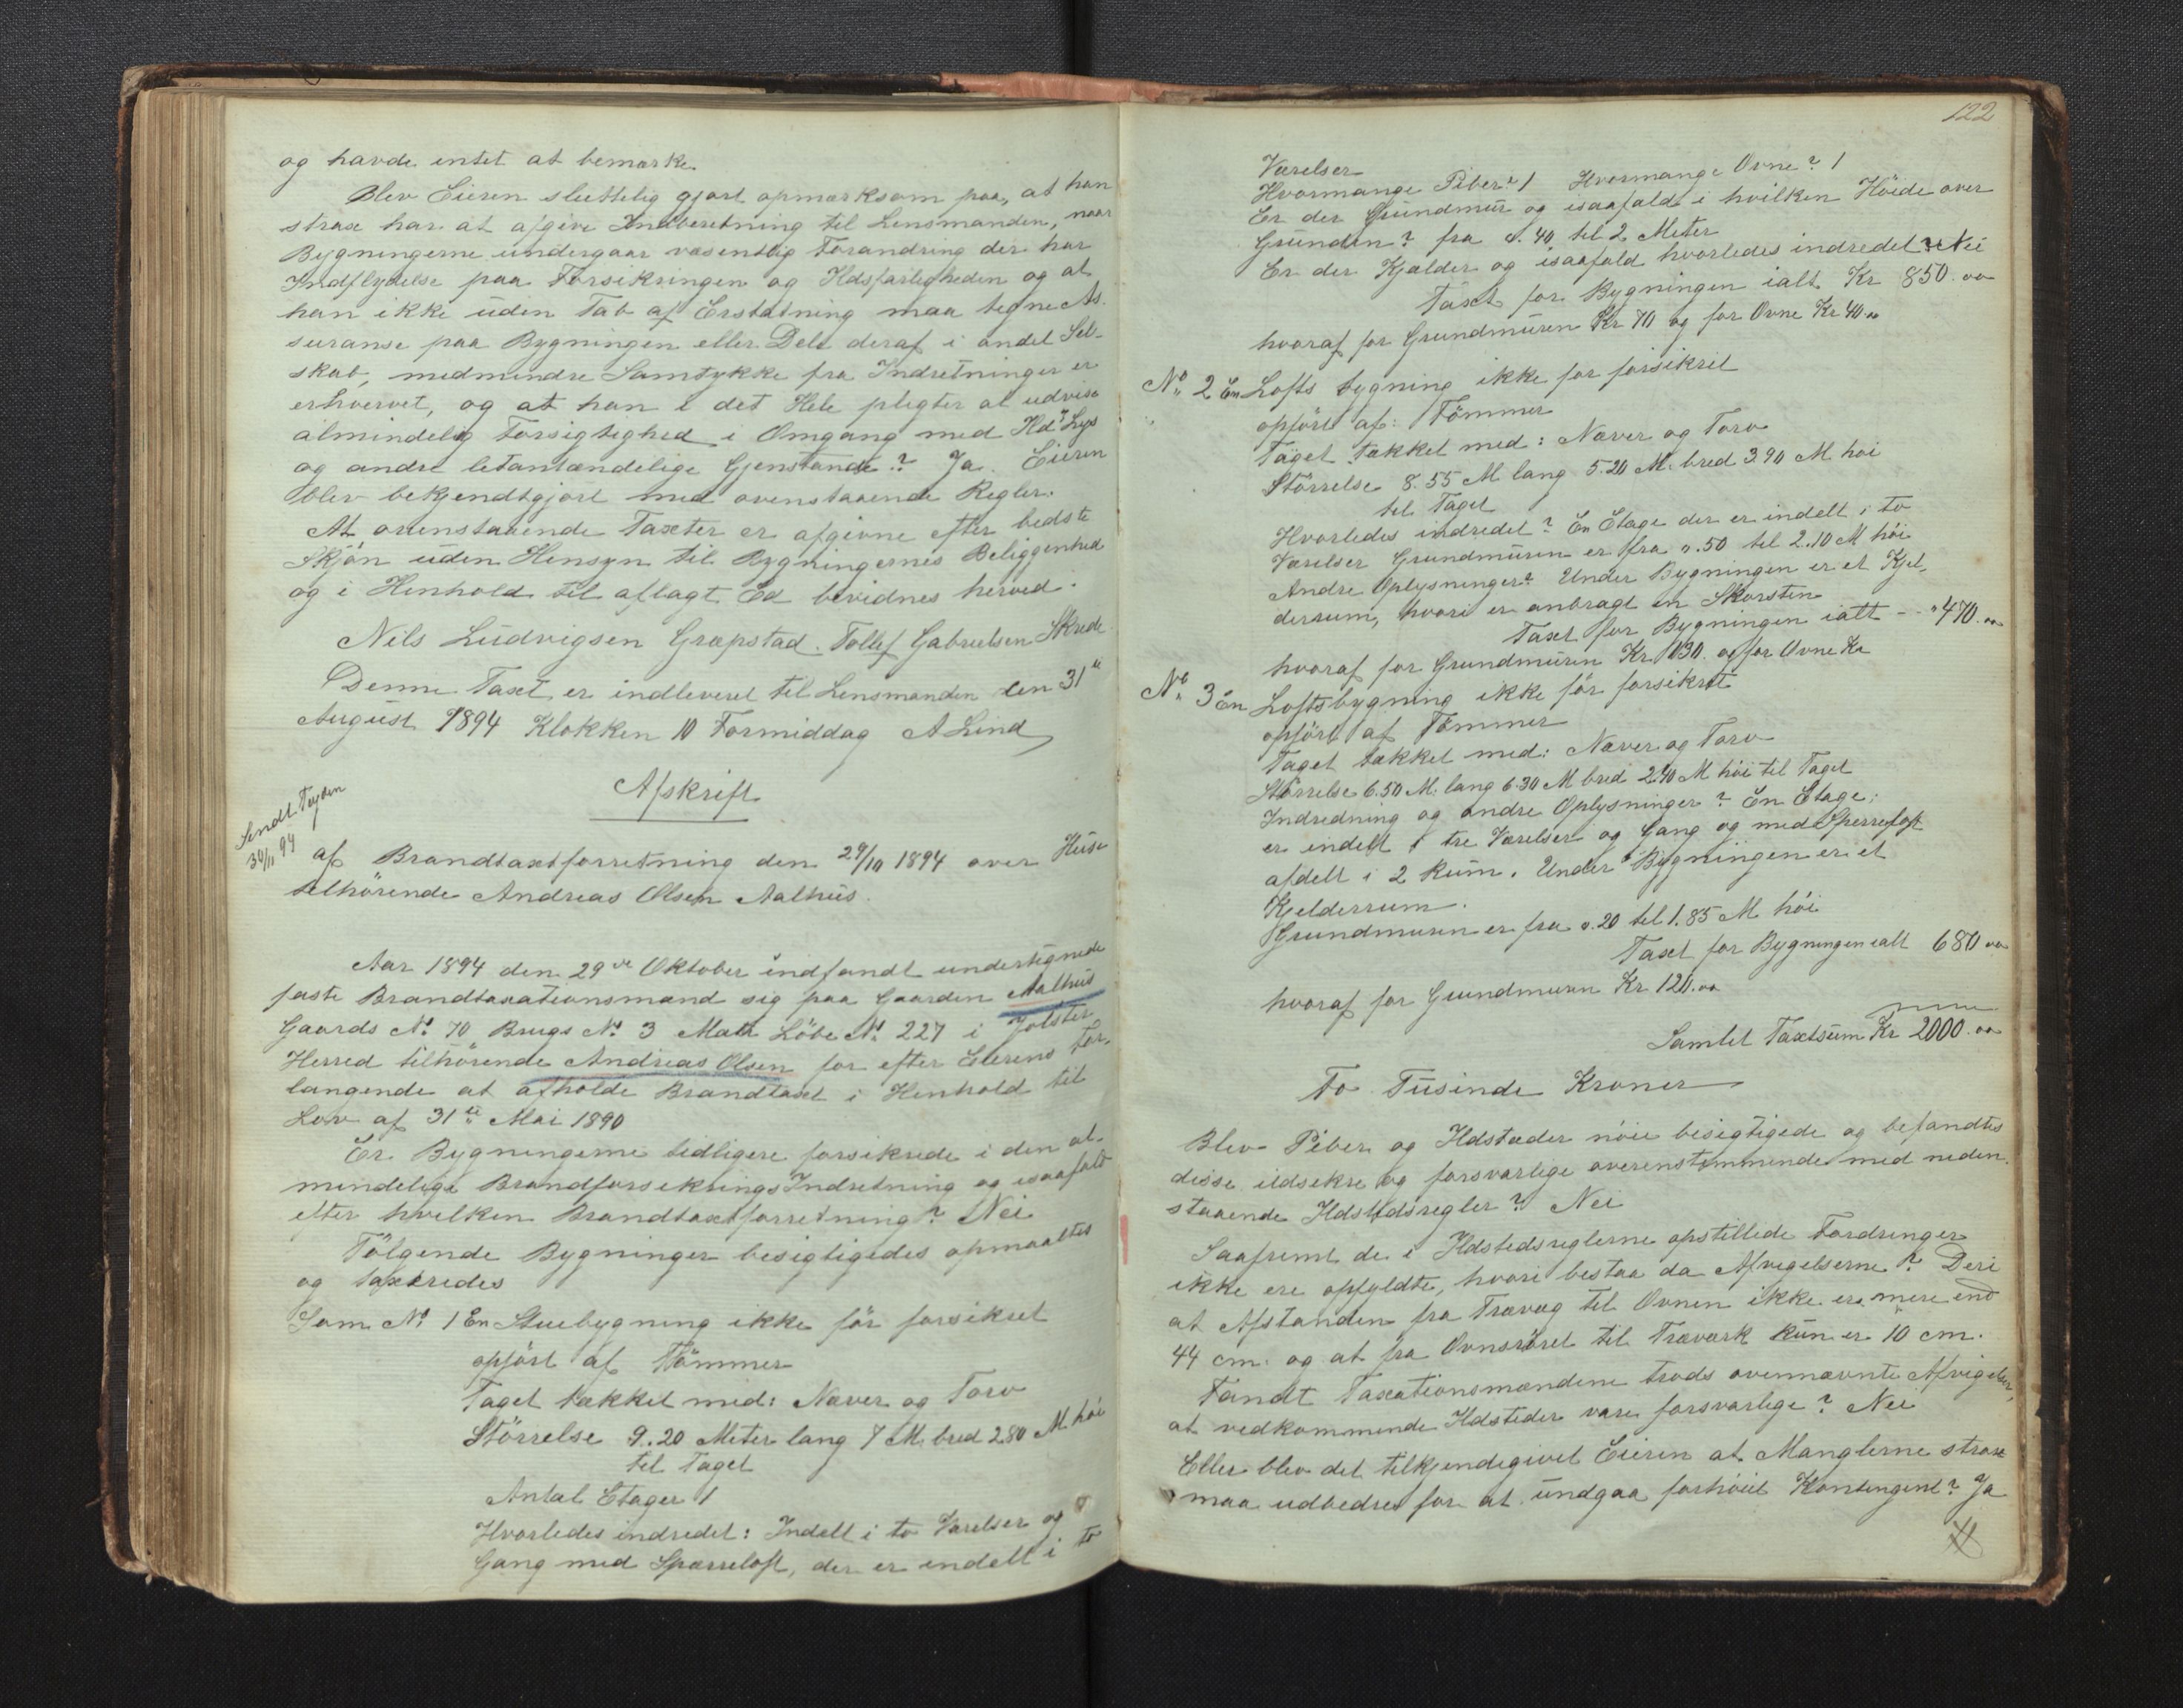 og havde intet at bemærke.
Blev Eieren sluttelig gjort opmærksom paa, at han
strax har at afgive Indberetning til Lensmanden, naar
Bygningerne undergaar væsentlig Forandring der har
Indflydelse paa Forsikringen og Ildsfarligheden og at
han ikke uden Tab af Erstatning maa tegne As-
suranse paa Bygningen eller Dele deraf i andet Sel-
skab, medmindre Samtykke fra Indretningen er
erhvervet, og at han i det Hele pligter at udvise
almindelig Forsigtighed i Omgang med Ild, Lys
og andre letantændelige Gjenstande? Ja. Eieren
blev bekjendtgjort med ovenstaaende Regler.
At ovenstaaende Taxter er afgivne efter bedste
Skjön uden Hensyn til Bygningernes Beliggenhed
og i Henhold til aflagt Ed bevidnes herved.
Nils Ludvigsen Grøpstad. Tollef Gabrielsen Skrede.
Denne Taxt er indleveret til Lensmanden den 31te
August 1894 Klokken 10 Formiddag A Lund
Afskrift
Sendt
30/11 94
af Brandtaxtforretning den 29/10 1894 over Huse
tilhörende Andreas Olsen Aalhus.
Aar 1894 den 29de Oktober indfandt undertegnede
faste Brandtaxationsmænd sig paa Gaarden Aalhus
Gaards No 70 Brugs No 3 Matr Löbe No 227 i Jølster
Herred tilhörende Andreas Olsen for efter Eierens For-
langende at afholde Brandtaxt i Henhold til
Lov af 31te Mai 1890
Er Bygningerne tidligere forsikrede i den al-
mindelige Brandforsikrings Indretning og isaafald
efter hvilken Brandtaxtforretning? Nei
Fölgende Bygninger besigtigedes opmaaltes
og taxtredes
Som No 1 En Stuebygning ikke för forsikret
opfört af Tömmer
Taget tækket med: Næver og Torv
Störrelse 9.20 Meter lang 7 M. bred 2.80 M höi
til Taget
Antal Etager 1
Hvorledes indredet: Indelt i to Værelser og
Gang med Sparreloft, der er indelt i to
122
Værelser
Hvormange Piber? 1 Hvormange Ovne? 1
Er der Grundmur og isaafald i hvilken Höide over
Grunden? fra 0.40 til 2 Meter
Er der Kjælder og isaafald hvorledes indredet? Nei
Taxt for Bygningen ialt Kr 850.00
hvoraf for Grundmuren Kr 70 og for Ovne Kr 40.00
No 2 En Lofts bygning ikke for forsikret
opfört af: Tömmer
Taget tækket med: Næver og Torv
Störrelse 8.55 M lang 5.20 M. bred 3.90 M. höi
til Taget
Hvorledes indredet? En Etage der er indelt i to
Værelser Grundmuren er fra 0.50 til 2.10 M höi
Andre Oplysninger? Under Bygningen er et Kjel-
derrum, hvori er anbragt en Skorsten
Taxt for Bygningen ialt - - " 470.00
hvoraf for Grundmuren Kr 130. og for Ovne Kr
No 3 En Loftsbygning ikke för forsikret
opfört af Tömmer
Taget tækket med: Næver og Torv
Störrelse 6.50 M. lang 6.30 M bred 2.40 M höi til Taget
Indredning og andre Oplysninger? En Etage;
er indelt i tre Værelser og Gang og med Sperreloft
afdelt i 2 Rum. Under Bygningen er et
Kjelderrum.
Grundmuren er fra 0.20 til 1.85 M höi
Taxt for Bygningen ialt 680 00
hvoraf for Grundmuren Kr 120.00
Samlet Taxtsum Kr 2000.00
To Tusinde Kroner
Blev Piber og Ildstæder nöie besigtigede og befandtes
disse ildsikre og forsvarlige overenstemmende med neden-
staaende Ildstedsregler? Nei
Saafremt de i Ildstedsreglerne opstillede Fordringer
ikke ere opfyldte, hvori bestaa da Afvigelserne? Deri
at Afstanden fra Trævæg til Ovnen ikke er mere end
44 cm. og at fra Ovnsröret til Træværk kun er 10 cm.
Fandt Taxationsmændene trods ovennævnte Afvigelser,
at vedkommende Ildsteder vare forsvarlige? Nei
Eller blev det tilkjendegivet Eieren at Manglerne strax
maa udbedres for at undgaa forhöiet Kontingent? Ja